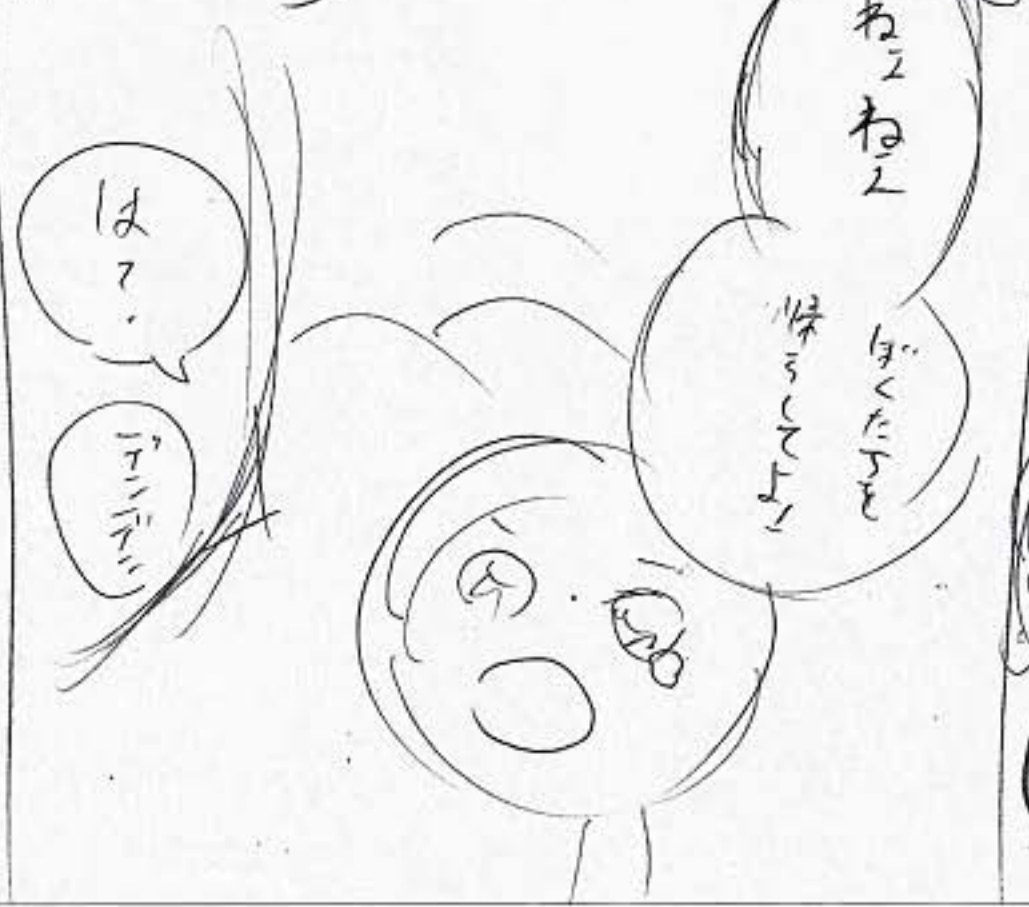 ねえ
ねえ
ぼくたちを
帰らしてよ!
は?
デンデン